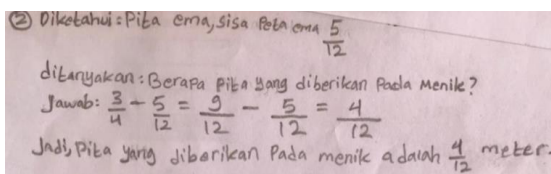 ② Diketahui : Pita ema, sisa Peta ema 5/12
ditanyakan : Berapa pita yang diberikan Pada Menik ?
Jawab : 3/4 - 5/12 = 9/12 - 5/12 = 4/12
Jadi, Pita yang diberikan Pada menik adalah 4/12 meter.